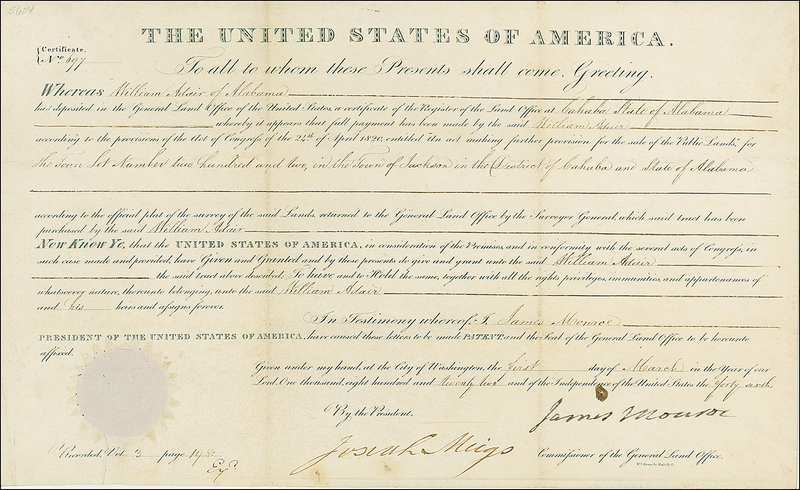 E604
THE UNITED STATES OF AMERICA.
Certificate.
No. 597
To all to whom these Presents shall come, Greeting.
Whereas William Adair of Alabama
ha deposited in the General Land Office of the United States, a certificate of the Register of the Land Office at Cahaba State of Alabama
whereby it appears that full payment has been made by the said William Adair
according to the provisions of the Act of Congress of the 24th of April 1820, entitled "An act making further provision for the sale of the Public Lands," for
the Town Lot Number two hundred and two, in the Town of Jackson in the District of Cahaba and State of Alabama
according to the official plat of the survey of the said Lands, returned to the General Land Office by the Surveyor General, which said tract has been
purchased by the said William Adair
Now Know Ye, that the UNITED STATES OF AMERICA, in consideration of the Premises, and in conformity with the several acts of Congress, in
such case made and provided, have Given and Granted and by these presents do give and grant unto the said William Adair
the said tract above described: To have and to Hold the same, together with all the rights, privileges, immunities, and appurtenances of
whatsoever nature, thereunto belonging, unto the said William Adair
and his heirs and assigns forever.
In Testimony whereof, I, James Monroe
PRESIDENT OF THE UNITED STATES OF AMERICA, have caused these letters to be made PATENT, and the Seal of the General Land Office to be hereunto
affixed.
Given under my hand, at the City of Washington, the first day of March in the Year of our
Lord, One thousand, eight hundred and twenty two and of the Independence of the United States the forty sixth.
By the President.
James Monroe
Josiah Meigs
Commissioner of the General Land Office.
Recorded, Vol. 3 page 198